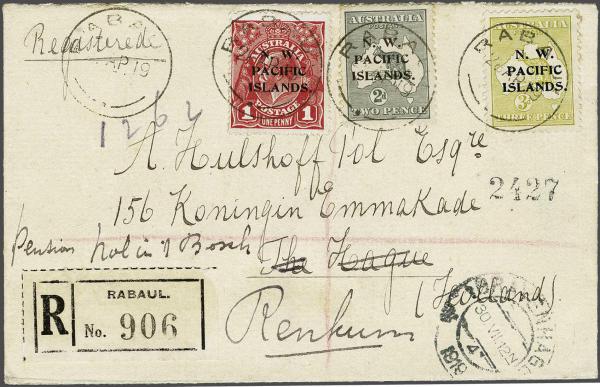 Registered
RABAUL
AP.19
AUSTRALIA
N. W.
PACIFIC
ISLANDS.
1 POSTAGE 1
ONE PENNY
RABAUL
AUSTRALIA
POSTAGE
N. W.
PACIFIC
ISLANDS.
2D
TWO PENCE
RABAUL
N. W.
PACIFIC
ISLANDS.
3D
THREE PENCE
RABAUL
1262
A. Hulshoff Pol Esqre
2427
156 Koningin Emmakade
Pension hol in 't Bosch
The Hague
(Holland)
Renkum
R
RABAUL.
No. 906
30 VII 12N
1919